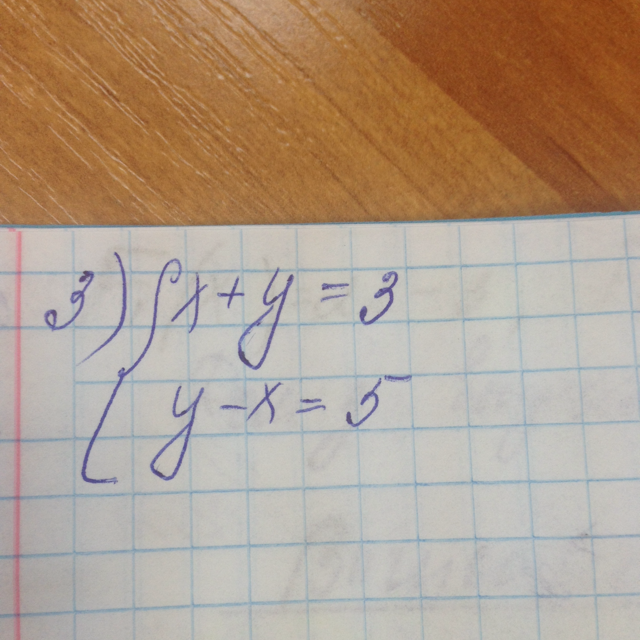 3) { x + y = 3
y - x = 5